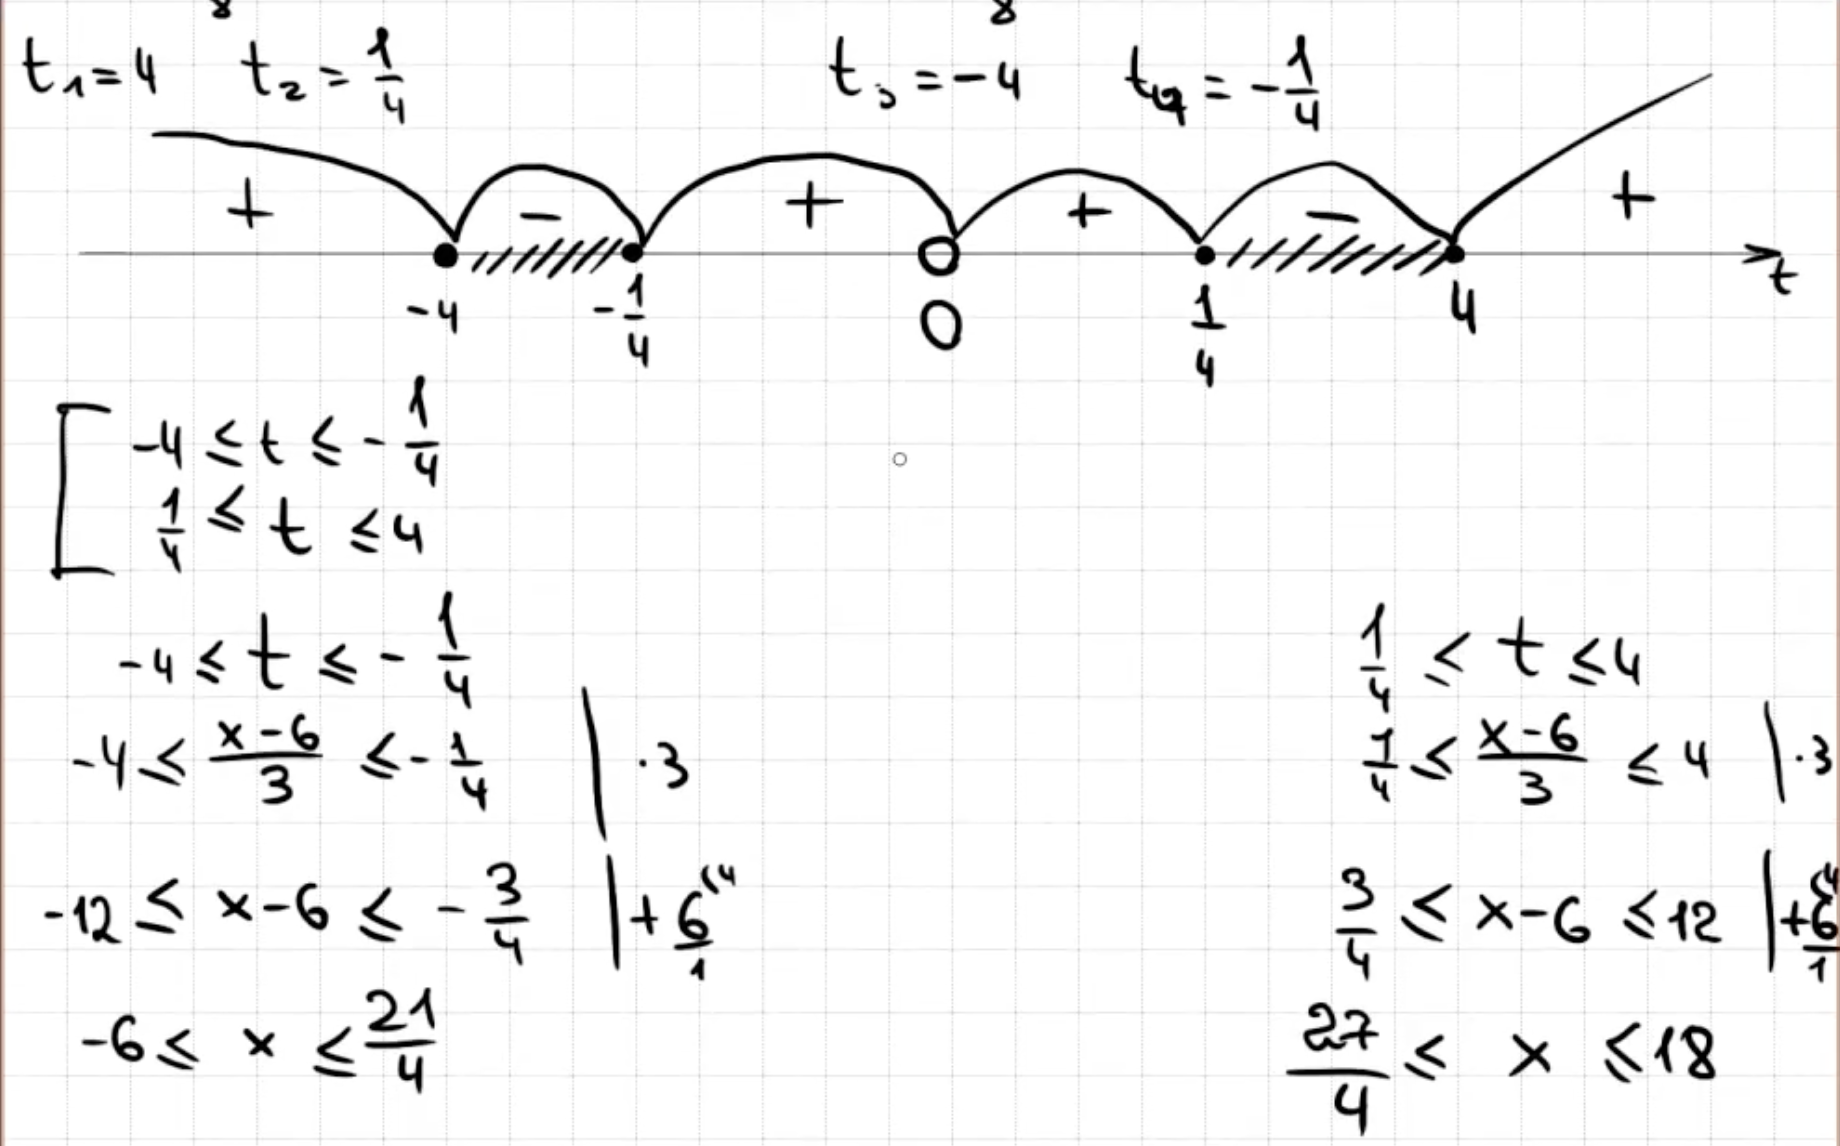 t₁=4 t₂=1/4 t₃=-4 t₄=-1/4
+ - + + - +
-4 -1/4 0 1/4 4 t
-4 ≤ t ≤ -1/4
1/4 ≤ t ≤ 4
-4 ≤ t ≤ -1/4
-4 ≤ (x-6)/3 ≤ -1/4 | ·3
-12 ≤ x-6 ≤ -3/4 | +6/1 (4
-6 ≤ x ≤ 21/4
1/4 ≤ t ≤ 4
1/4 ≤ (x-6)/3 ≤ 4 | ·3
3/4 ≤ x-6 ≤ 12 | +6/1 (4
27/4 ≤ x ≤ 18